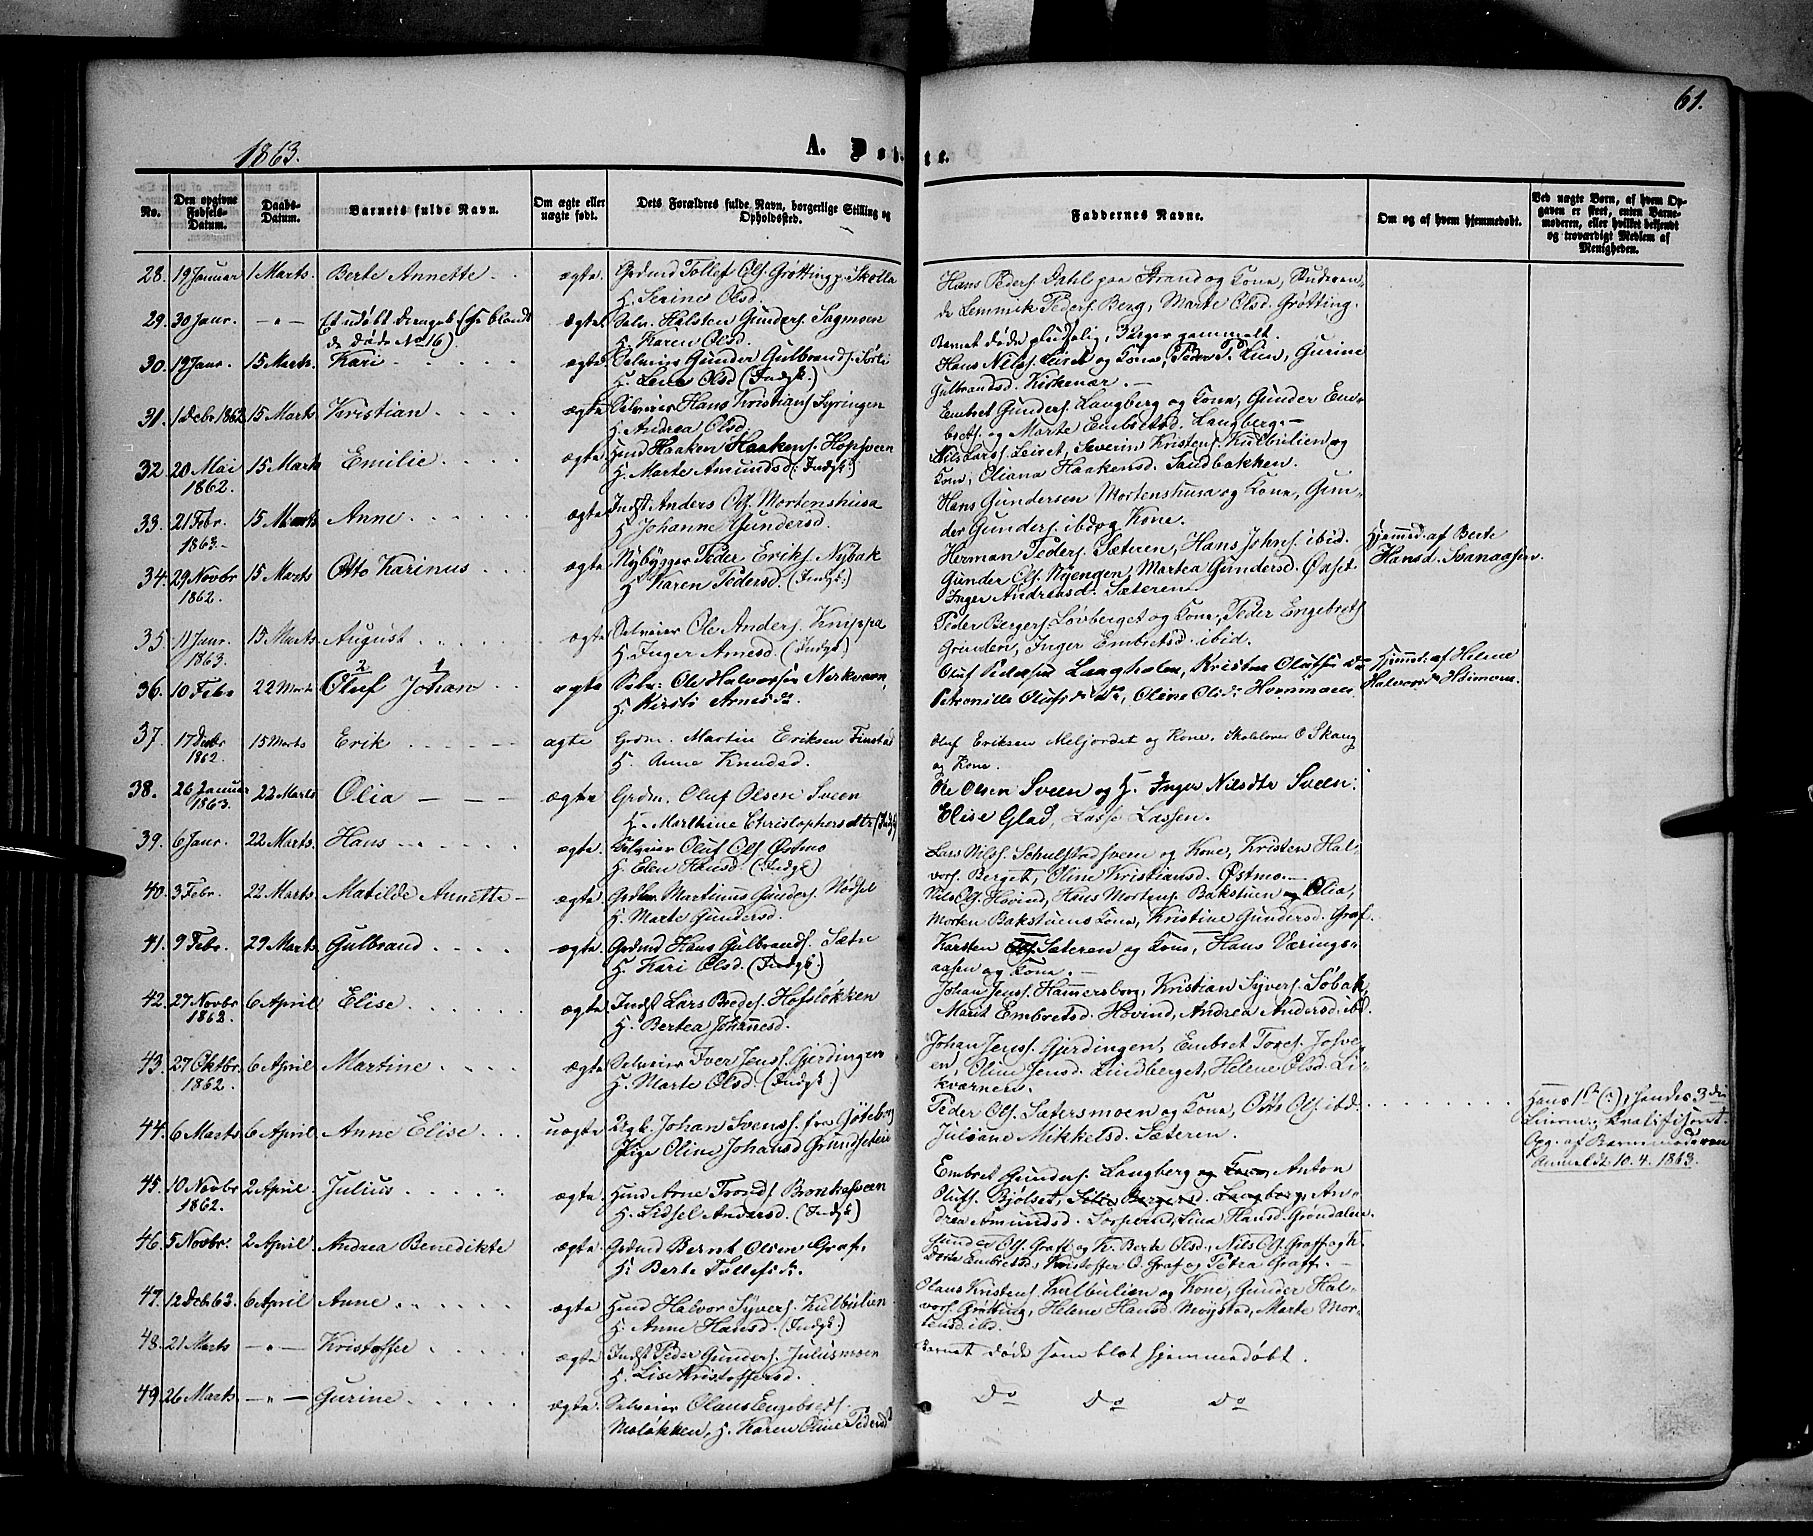 61.
1863.
A. Døbte.
No.
Den opgivne Fødsels-Datum.
Daabs-Datum.
Barnets fulde Navn.
Om ægte eller uægte født.
Dets Forældres fulde Navn, borgerlige Stilling og Opholdssted.
Faddernes Navne.
Om og af hvem hjemmedøbt.
Ved uægte Børn, af hvem Opgaven er skeet, enten Barnemoderen, eller hvilket bekjendt og troværdigt Medlem af Menigheden.
28. 19 Januar 1 Marts. Berte Annette ægte Grdmd Tollef Ols. Grøtting p. Skolla
H. Serine Olsd.
Hans Peders. Dahl paa Strand og Kone,
de Lemmik Peders. Berg, Marte Olsd. Grøtting.
29. 30 Janr. -„- Et udøbt Drengeb. (Se blandt
de Døde No 16)
ægte Selv. Halsten Gunders. Sagmoen
H. Karen Olsd.
Barnet døde pludselig, 3 Uger gammelt.
30. 19 Janr. 15 Marts. Kari ægte Selveier Gunder Gulbrands.
H. Lena Olsd (Indgk.)
Hans Nilss. Leiret og Kone, Peder P. Lien, Gurine
Gulbrandsd. Kirkenær.
31. 1 Debr 1862 15 Marts Kristian ægte Selveier Hans Kristians. Syringen
H. Andrea Olsd.
Embret Gunders. Langberg og Kone, Gunder Em-
brets. og Marte Embretsd. Langberg.
32. 20 Mai
1862.
15 Marts Emilie ægte Husmd Haaken Haakens. Hopsveen
H. Marte Amundsd. (Indgk.)
Nils Larss. Leiret, Severin Kristens. Kulbulien og
Kone, Oliana Haakensd. Sandbakken.
33. 21 Febr.
1863.
15 Marts Anne ægte Indst Anders Ols. Mortenshusa
H. Johanne Gundersd.
Hans Gundersen Mortenshusa og Kone, Gun-
der Gunders. ibd og Kone.
34. 29 Novbr
1862.
15 Marts Otto Karinus ægte Nybygger Peder Eriks. Nybak
H. Karen Pedersd. (Indgk.)
Herman Peders. Sæteren, Hans Johns. ibid.
Gunder Ols. Nyengen, Martea Gundersd. Øaset.
Inger Andreasd. Sæteren.
Hjemmed. af Berte
Hansd. Svanaasen.
35. 11 Janr.
1863.
15 Marts August ægte Selveier Ole Anders. Knippa
H. Inger Arnesd. (Indgk.)
Peder Bergers. Løvberget og Kone, Peder Engebrets.
Grunden, Inger Embretsd. ibid.
36. 10 Febr 22 Marts Oluf Johan ægte Selv. Ole Halvorsen Nerkveen,
H. Kirsti Arnesdr.
Oluf Pedersen Langholen, Kristen Olufsen do
Petronille Olufsdr do, Oline Olsdr Hornmoen.
Hjemmd. af Helene
Halvorsdr Heimoen.
37. 17 Decbr
1862.
15 Marts Erik ægte Grdm. Martin Eriksen Finstad
H. Anne Knudsd.
Oluf Eriksen Meljordet og Kone. Skolelærer O Skaug
og Kone.
38. 26 Januar
1863.
22 Marts Olia ægte Grdm. Oluf Olsen Sveen
H. Marthine Christophersdtr (Indgk)
Ole Olsen Sveen og H. Inger Nilsdtr Sveen:
Elise Glad, Lasse Lassen.
39. 6 Janr. 22 Marts. Hans ægte Selveier Oluf Ols. Østmo
H. Elen Hansd. (Indgk)
Lars Nilss. Schulstadsveen og Kone, Kristen Hal-
vors. Berget, Oline Kristiansd. Østmo.
40. 3 Febr. 22 Marts. Matilde Annette ægte Grdbr Martinus Gunders. Nødset
H. Marte Gundersd.
Nils Ols. Hovind, Hans Mortens. Bakstuen og Olia,
Morten Bakstuens Kone, Kristine Gundersd. Graf.
41. 9 Febr. 29 Marts. Gulbrand ægte Grdmd Hans Gulbrands. Sætre
H. Kari Olsd. (Indgk.)
Karsten Sæteren og Kone, Hans Værings-
aasen og Kone.
42. 27 Novbr
1862.
6 April Elise ægte Indst Lars Bredes. Hofsløkken
H. Bertea Johannesd.
Johan Jenss. Hammersborg, Kristian Syvers. Søbak,
Marit Embretsd. Hovind, Andrea Andersd. ibd.
43. 27 Oktbr.
1862.
6 April Martine ægte Selveier Iver Jenss. Gjerdingen
H. Marte Olsd (Indgk.)
Johan Jenss. Gjerdingen, Embret Tores. Josve-
en, Oline Jensd. Lindberget, Helene Olsd. Li-
kværnen.
44. 6 Marts 6 April Anne Elise uægte Ugk. Johan Svenss. fra Gøteborg
Pige Oline Johansd Grundseteie
Peder Ols. Sætersmoen og Kone, Otto Ols. ibd.
Julsane Mikkelsd. Sæteren.
Hans 1ste (:), hendes 3die
Leierm., kvalificeret.
Opg. af Barnmoderen
Anmeldt 10.4.1863.
45. 10 Novbr
1862.
2 April Julius ægte Husmd Arne Tronds. Bronkesveen
H. Sidsel Andersd. (Indgk)
Embret Gunders. Langberg og Kone, Anton
Olufs. Bjølset, Langberg, An-
drea Amundsd. Lina Hansd. Grøndalen.
46. 5 Novbr. 2 April Andrea Benedikte ægte Grdmd Bernt Olsen Graf,
H. Berte Tollefsdr.
Ols. Graff og H. Berte Olsd., Nils Ols. Graff og H.
Dorte Embretsd, Kristoffer O. Graf og Petra Graff.
47. 12 Deb 63. 6 April Anne ægte Husmd Halvor Syvers. Kulbulien
H. Anne Hansd. (Indgk.)
Olaus Kristens. Kulbulien og Kone, Gunder Hal-
vors. Grøtting, Helene Hansd. Møystad, Marte Mor-
tensd. ibd.
48. 21 Marts -„- Kristoffer ægte Indst Peder Gunders. Julusmoen
H. Lise Kristoffersd.
Barnet døde som blot hjemmedøbt.
49. 26 Marts -„- Gurine ægte Selveier Olaus Engebrets.
Moløkken, H. Karen Oline Pedersd
Do Do Do